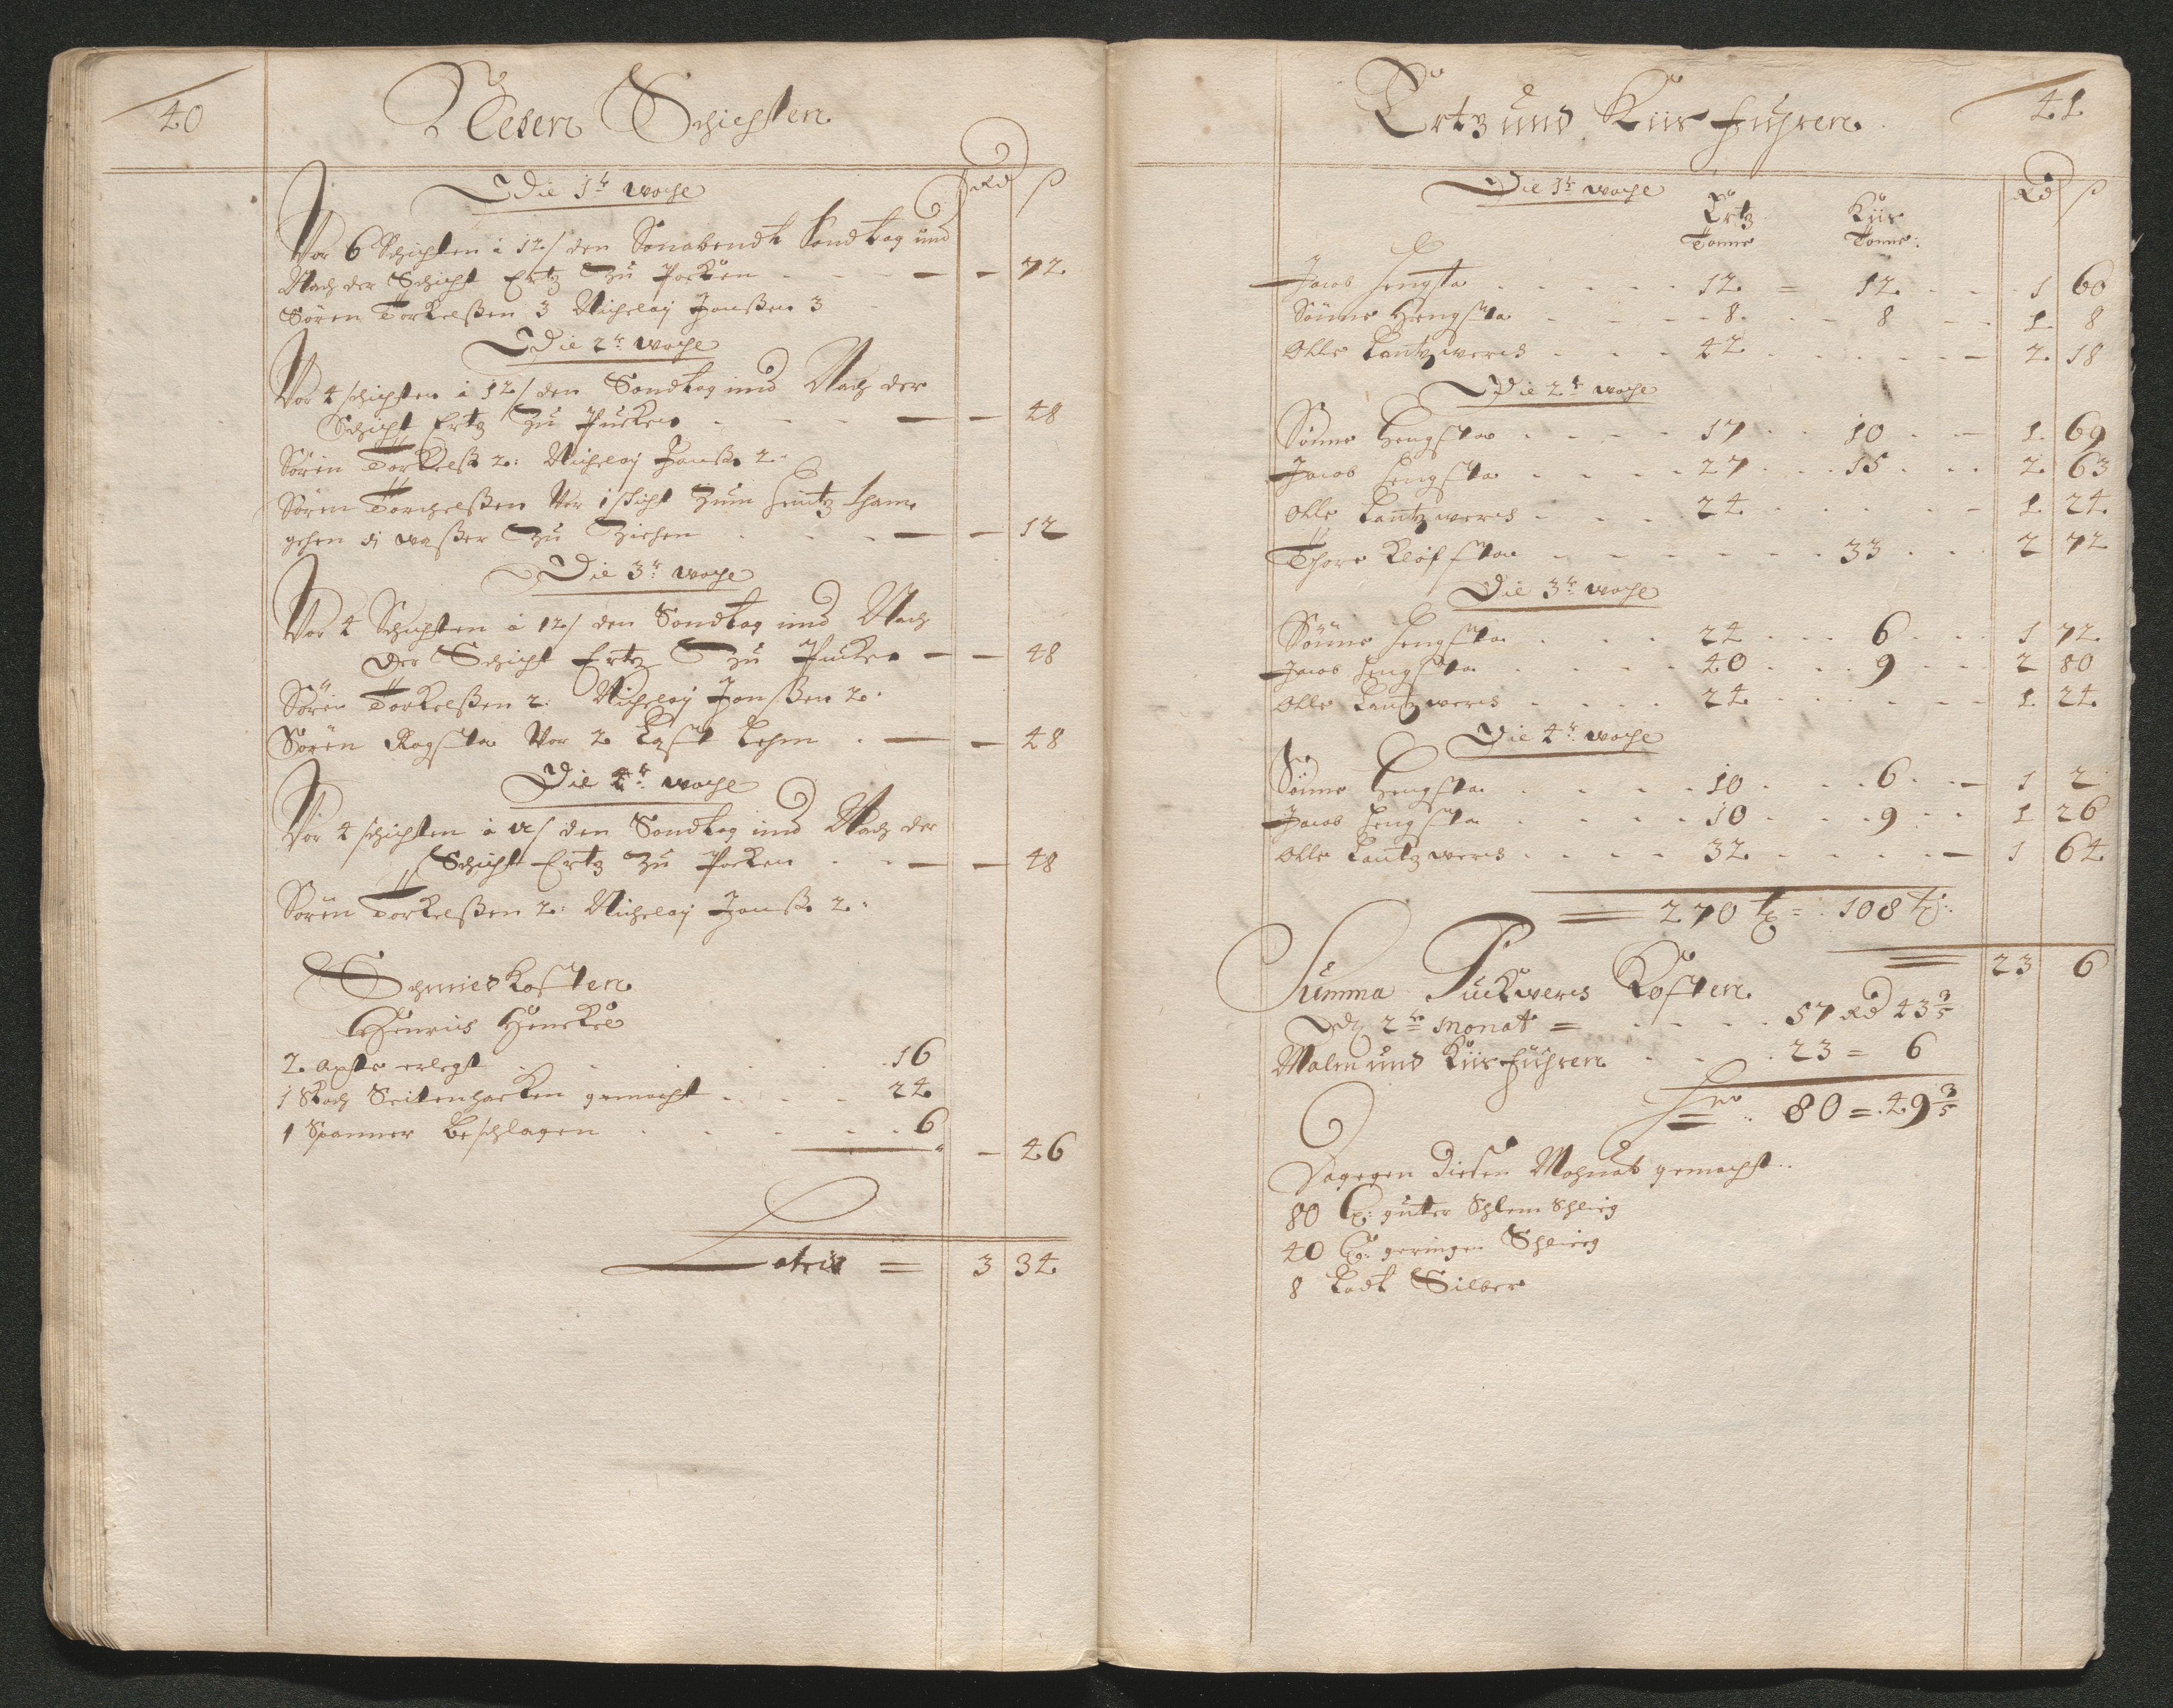 40
Neben Schichten
Die 1te woche
Rd ß
Vor 6 Schichten à 12 ß den Sonabendt Sondtag und
Nach der Schicht Ertz Zu Pocken - - - - 72
Sören Torkelßen 3 Nicheley Janßen 3
Die 2te woche
Vor 4 schichten à 12 ß den Sondtag und Nach der
Schicht Ertz Zu Pucken - - - 48
Sören Torkelß 2: Nicheley Janß 2
Sören Torchelßen Vor 1 schicht Zum
gehen di waßer Zu Ziehen - - - 12
Die 3te woche
Vor 4 Schichten à 12 ß den Sondtag und Nach
der Schicht Ertz Zu Pucken - - 48
Sören Torkelßen 2: Nicheley Janßen 2
Sören Rogsta Vor 2 Last Lehm - - 48
Die 4te woche
Vor 4 schichten à 12 ß den Sondtag und Nach der
Schicht Ertz Zu Pocken - - - 48
Sören Torkelßen 2: Nicheley Janß 2:
Schmied Kosten
Henrich Henckel
2 Axste erlegt . . . 16
1 Stoch Seitenhacken gemacht . . . 24
1 Spanner beschlagen . . . 6
- 46
Latris = 3 34
41
Ertz und Kiis fuhren
Die 1te woche Ertz Tonne Kiis Tonne: Rd ß
Jacob Hengsta . . . 12 = 12 - - 1 60
Sönne Hengsta - - - 8 - - 8 - - 1 8
Olle Lantzwerck - - - 42 . . . - 2 18
Die 2te woche
Sönne Hengsta . . . 17 . . 10 . - 1 69
Jacob Hengsta . . . 27 . . 15 . . 2 63
Olle Lantzwerck - . . 24 . . . - 1 24
Thore Klöfsta - - - 33 . . 2 72
Die 3te woche
Sönne Hengsta . . . 24 . . 6 . . 1 72
Jacob Hengsta . . . 40 . . 9 . . 2 80
Olle Lantzwerck . . . 24 . . . - 1 24
Die 4te woche
Sönne Hengsta . . . 10 . . 6 . - 1 2
Jacob Hengsta . . . 10 . . 9 . . 1 26
Olle Lantzwerck . . . 32 . . . - 1 64
= 270 = 108
23 6
Summa Puckwercs Kosten
2te Monat = . . . 57 Rd 43 3/5
Malm und Kiis führen . . . 23 = 6
80 = 49 3/5
Dagegen diesen Mohnat gemacht
80 guter Schlem Schlieg
40 geringen Schlieg
8 Lodt Silber